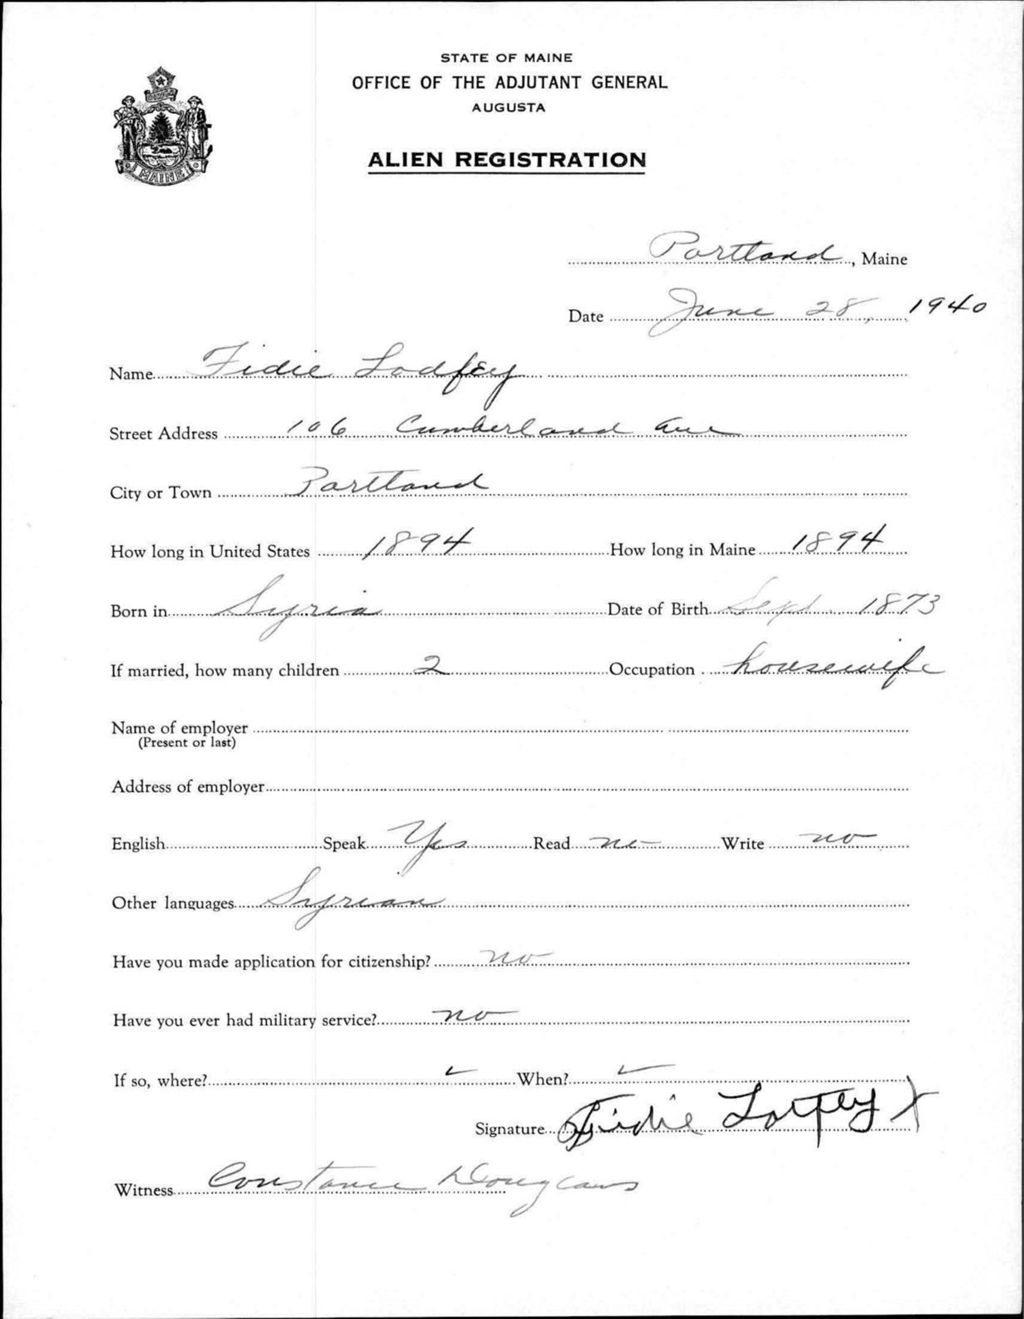 STATE OF MAINE
OFFICE OF THE ADJUTANT GENERAL
AUGUSTA
ALIEN REGISTRATION
MAINE
Portland, Maine
Date June 28, 1940
Name Fidie Lodfey
Street Address 106 Cumberland Ave
City or Town Portland
How long in United States 1894 How long in Maine 1894
Born in Syria Date of Birth Sept. 1873
If married, how many children 2 Occupation housewife
Name of employer
(Present or last)
Address of employer
English Speak Yes Read no Write no
Other languages Syrian
Have you made application for citizenship? no
Have you ever had military service? no
If so, where? When?
Signature Fidie X
Witness Constance